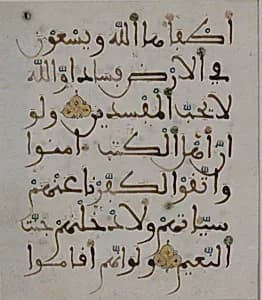 أطفأها الله ويسعون
في الأرض فسادا والله
لا يحب المفسدين ولو
أن أهل الكتب ءامنوا
واتقوا لكفرنا عنهم
سيئاتهم ولأدخلنهم جنت
النعيم ولو أنهم أقاموا